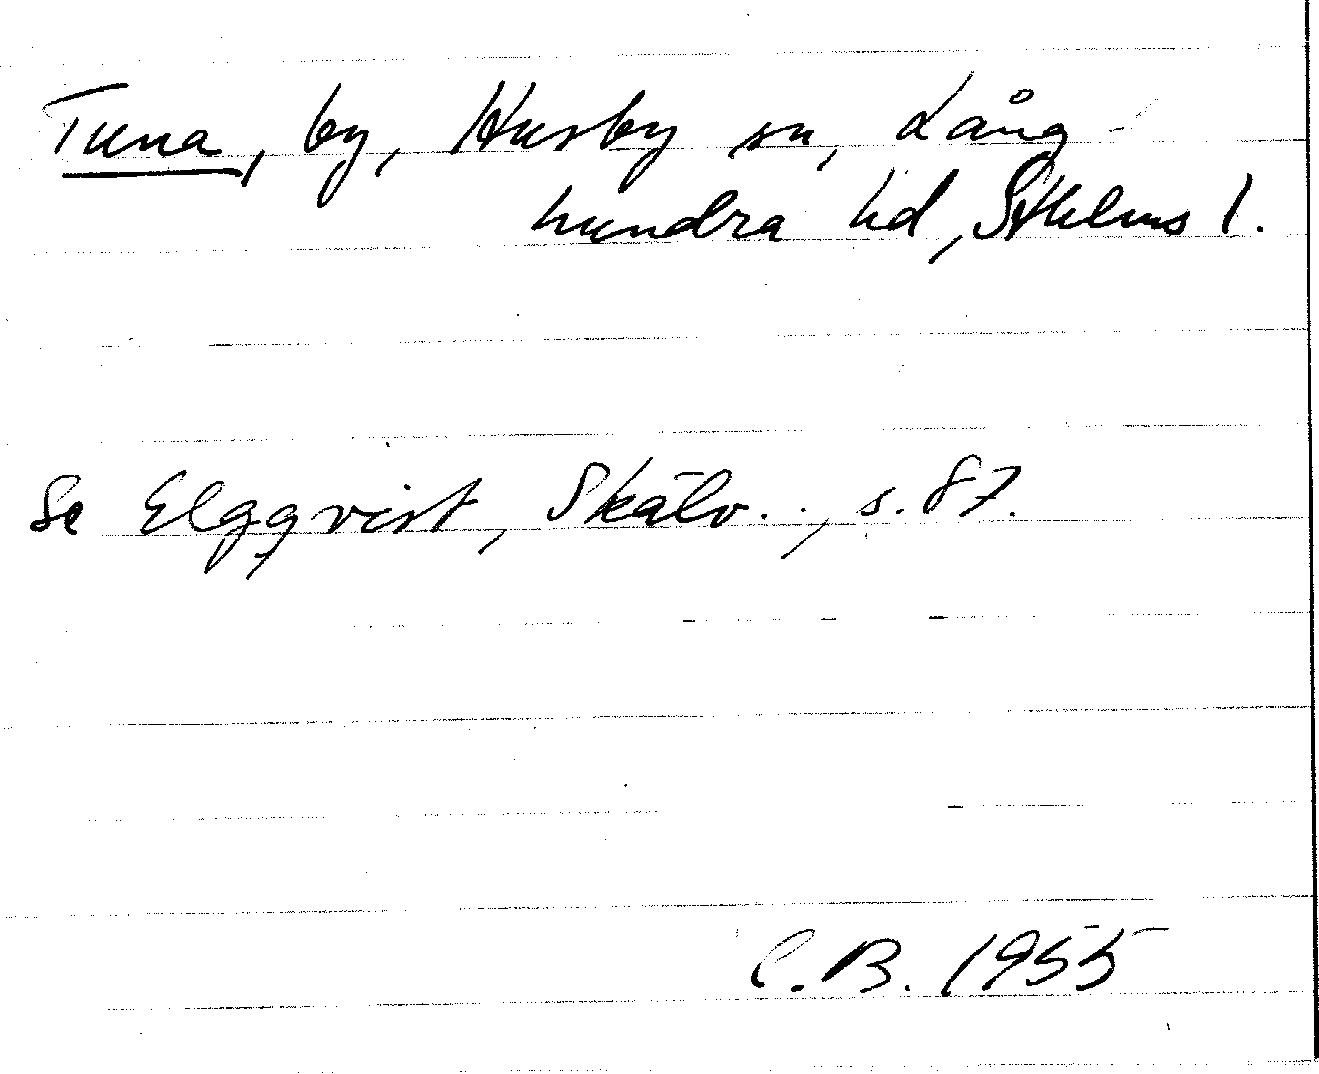 Tuna, by, Husby sn, Lång-
hundra hd, Sthlms l.
Se Elgqvist, Skälv.., s. 87.
C.B. 1955